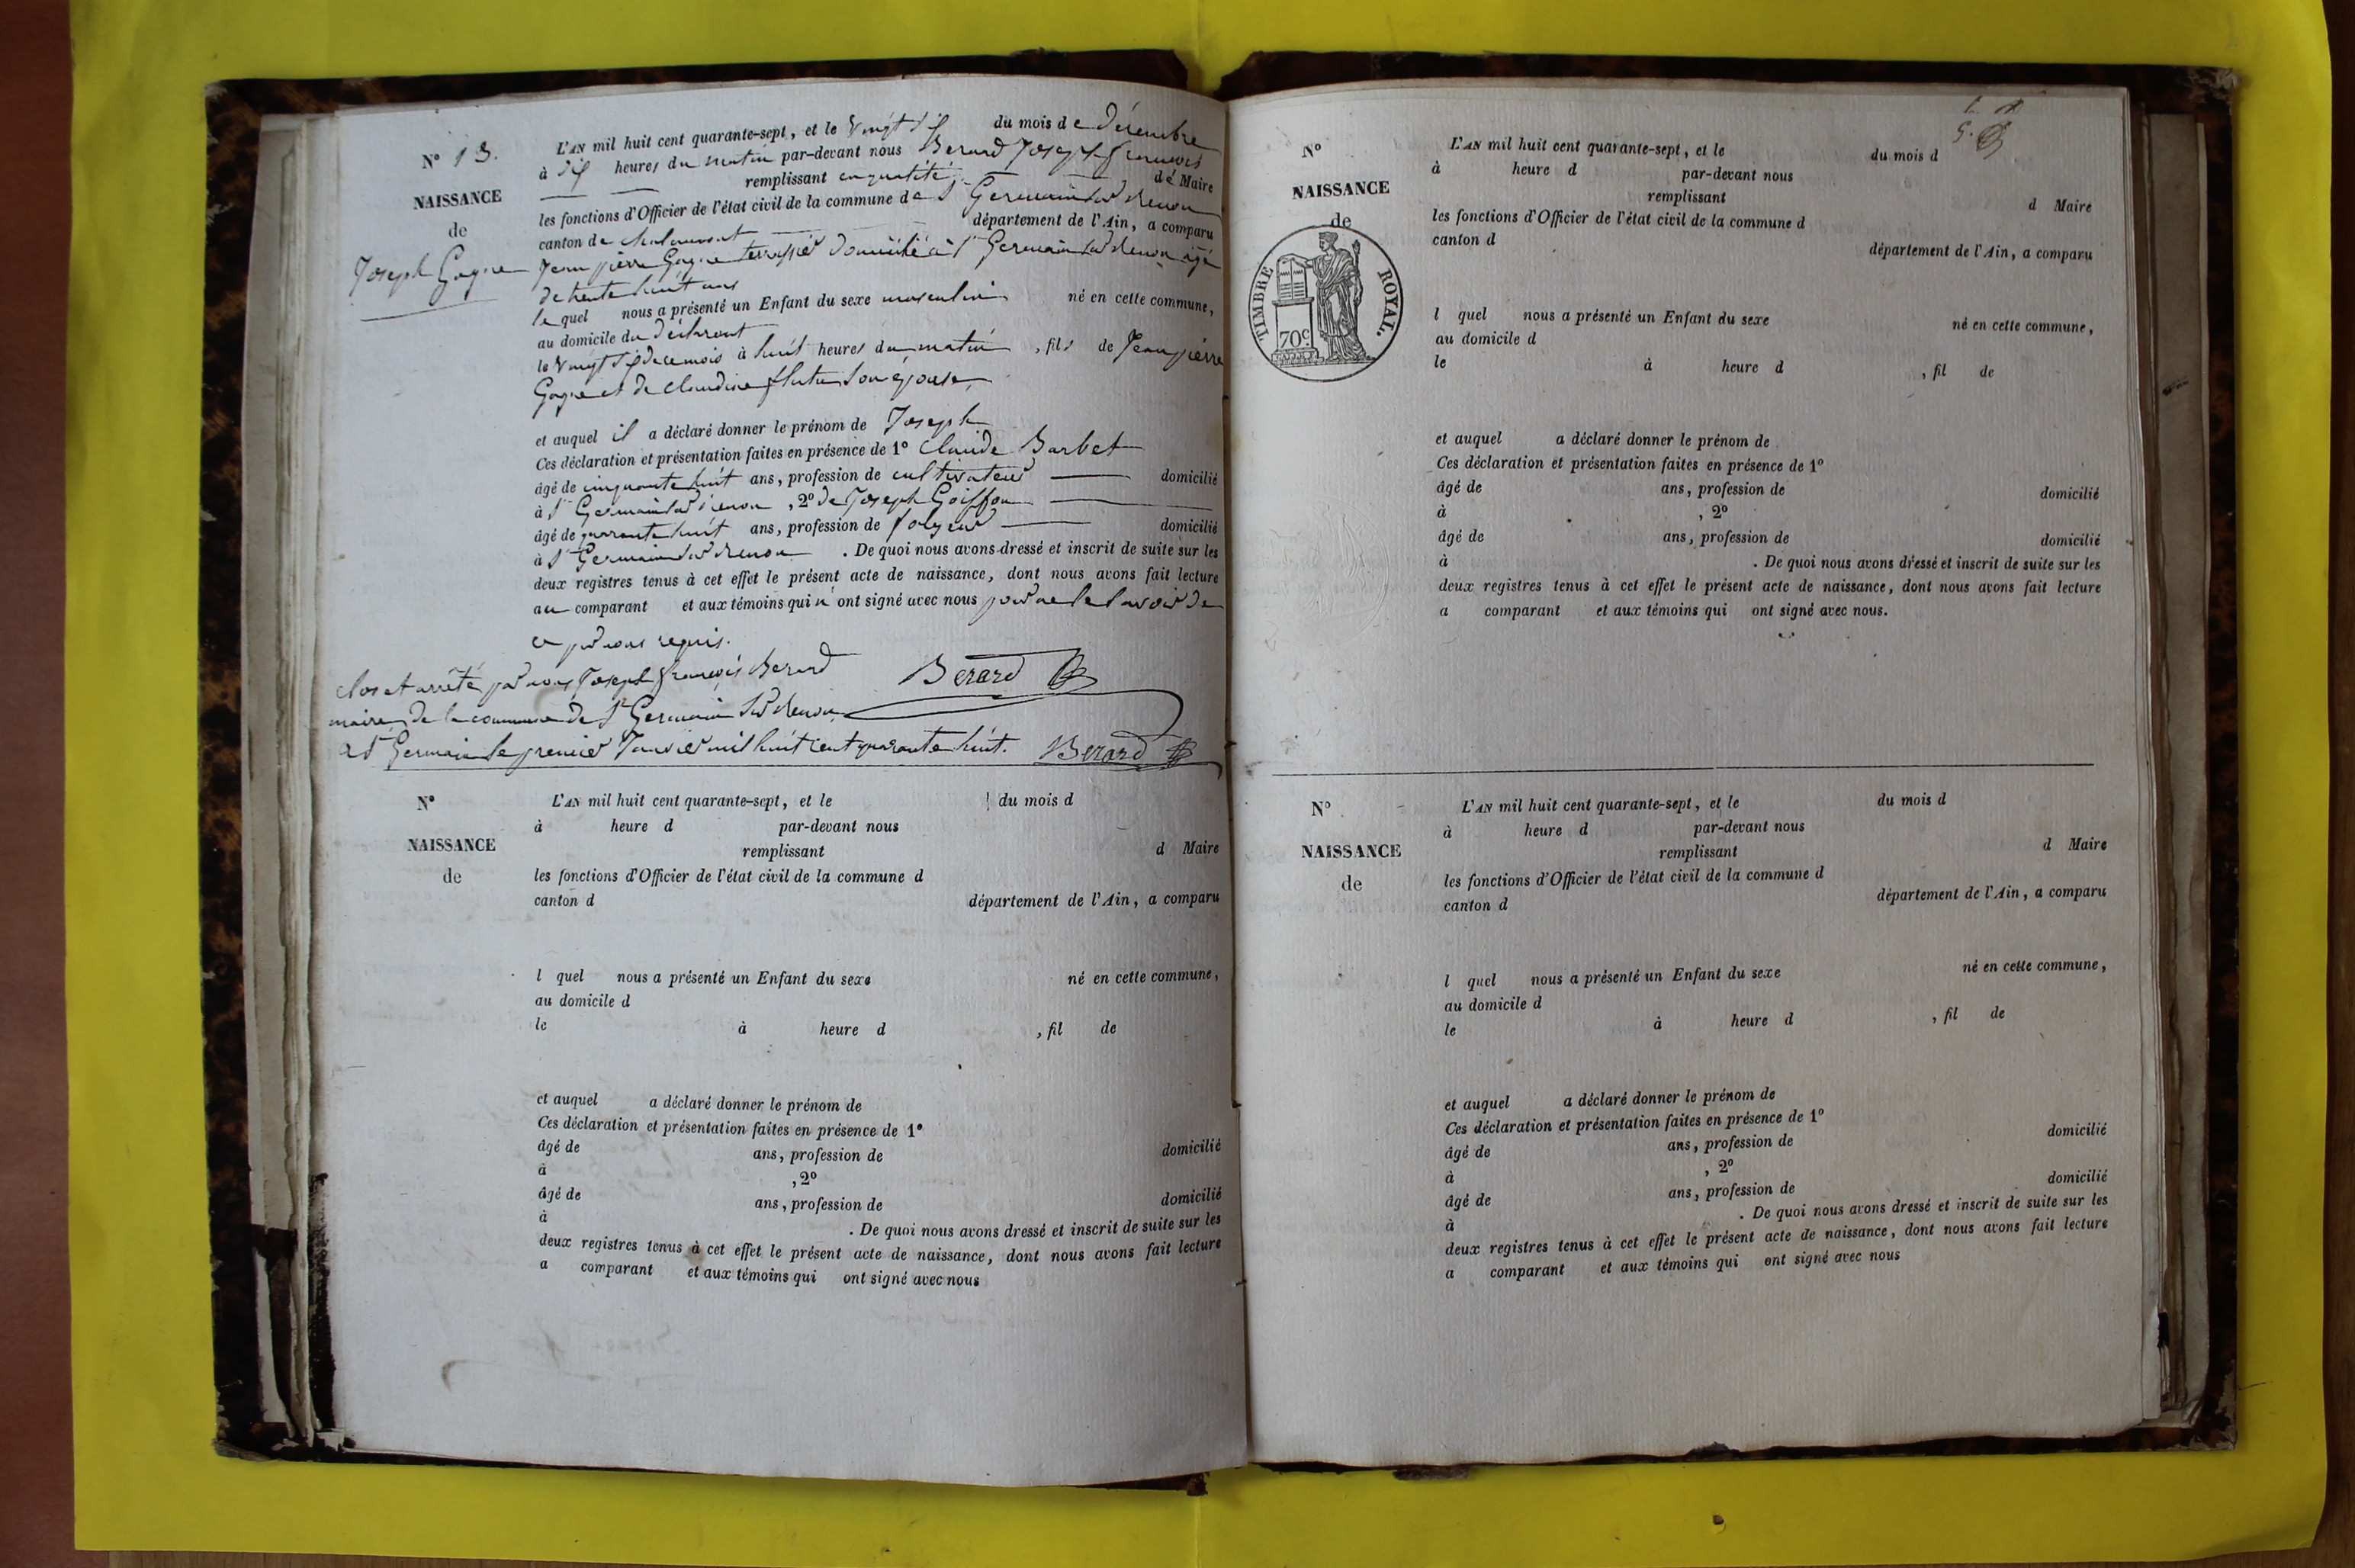 N° 13.
NAISSANCE
de
Joseph Gagne
L'AN mil huit cent quarante-sept, et le vingt six du mois de décembre
à dix heures du matin par-devant nous Berard Joseph françois
remplissant en qualité de Maire
les fonctions d'Officier de l'état civil de la commune de St Germain sur renon
canton de chalamont département de l'Ain, a comparu
Jean pierre Gagne terrassier domicilié à St Germain sur renon âgé
de trente huit ans
lequel nous a présenté un Enfant du sexe masculin né en cette commune,
au domicile du déclarant
le vingt six de ce mois à huit heures du matin, fils de Jean pierre
Gagne et de claudine son épouse
et auquel il a déclaré donner le prénom de Joseph
Ces déclaration et présentation faites en présence de 1° Claude Barbet
âgé de cinquante huit ans, profession de cultivateur domicilié
à St Germain sur renon, 2° de Joseph Goiffon
âgé de quarante huit ans, profession de domicilié
à St Germain sur renon. De quoi nous avons dressé et inscrit de suite sur les
deux registres tenus à cet effet le présent acte de naissance, dont nous avons fait lecture
au comparant et aux témoins qui n'ont signé avec nous pour ne le savoir de
ce par nous requis.
clos et arrêté par nous Joseph françois Berard
Berard
maire de la commune de St Germain sur renon
a St Germain le premier Janvier mil huit cent quarante huit. Berard
N°
NAISSANCE
de
L'AN mil huit cent quarante-sept, et le du mois d
à heure d par-devant nous
remplissant d Maire
les fonctions d'Officier de l'état civil de la commune d
canton d département de l'Ain, a comparu
l quel nous a présenté un Enfant du sexe né en cette commune,
au domicile d
le à heure d , fil de
et auquel a déclaré donner le prénom de
Ces déclaration et présentation faites en présence de 1°
âgé de ans, profession de domicilié
à , 2°
âgé de ans, profession de domicilié
à . De quoi nous avons dressé et inscrit de suite sur les
deux registres tenus à cet effet le présent acte de naissance, dont nous avons fait lecture
a comparant et aux témoins qui ont signé avec nous
N°
NAISSANCE
de
TIMBRE ROYAL.
70c
L'AN mil huit cent quarante-sept, et le du mois d
à heure d par-devant nous
remplissant d Maire
les fonctions d'Officier de l'état civil de la commune d
canton d département de l'Ain, a comparu
l quel nous a présenté un Enfant du sexe né en cette commune,
au domicile d
le à heure d , fil de
et auquel a déclaré donner le prénom de
Ces déclaration et présentation faites en présence de 1°
âgé de ans, profession de domicilié
à , 2°
âgé de ans, profession de domicilié
à . De quoi nous avons dressé et inscrit de suite sur les
deux registres tenus à cet effet le présent acte de naissance, dont nous avons fait lecture
a comparant et aux témoins qui ont signé avec nous.
N°
NAISSANCE
de
L'AN mil huit cent quarante-sept, et le du mois d
à heure d par-devant nous
remplissant d Maire
les fonctions d'Officier de l'état civil de la commune d
canton d département de l'Ain, a comparu
l quel nous a présenté un Enfant du sexe né en cette commune,
au domicile d
le à heure d , fil de
et auquel a déclaré donner le prénom de
Ces déclaration et présentation faites en présence de 1°
âgé de ans, profession de domicilié
à , 2°
âgé de ans, profession de domicilié
à . De quoi nous avons dressé et inscrit de suite sur les
deux registres tenus à cet effet le présent acte de naissance, dont nous avons fait lecture
a comparant et aux témoins qui ont signé avec nous